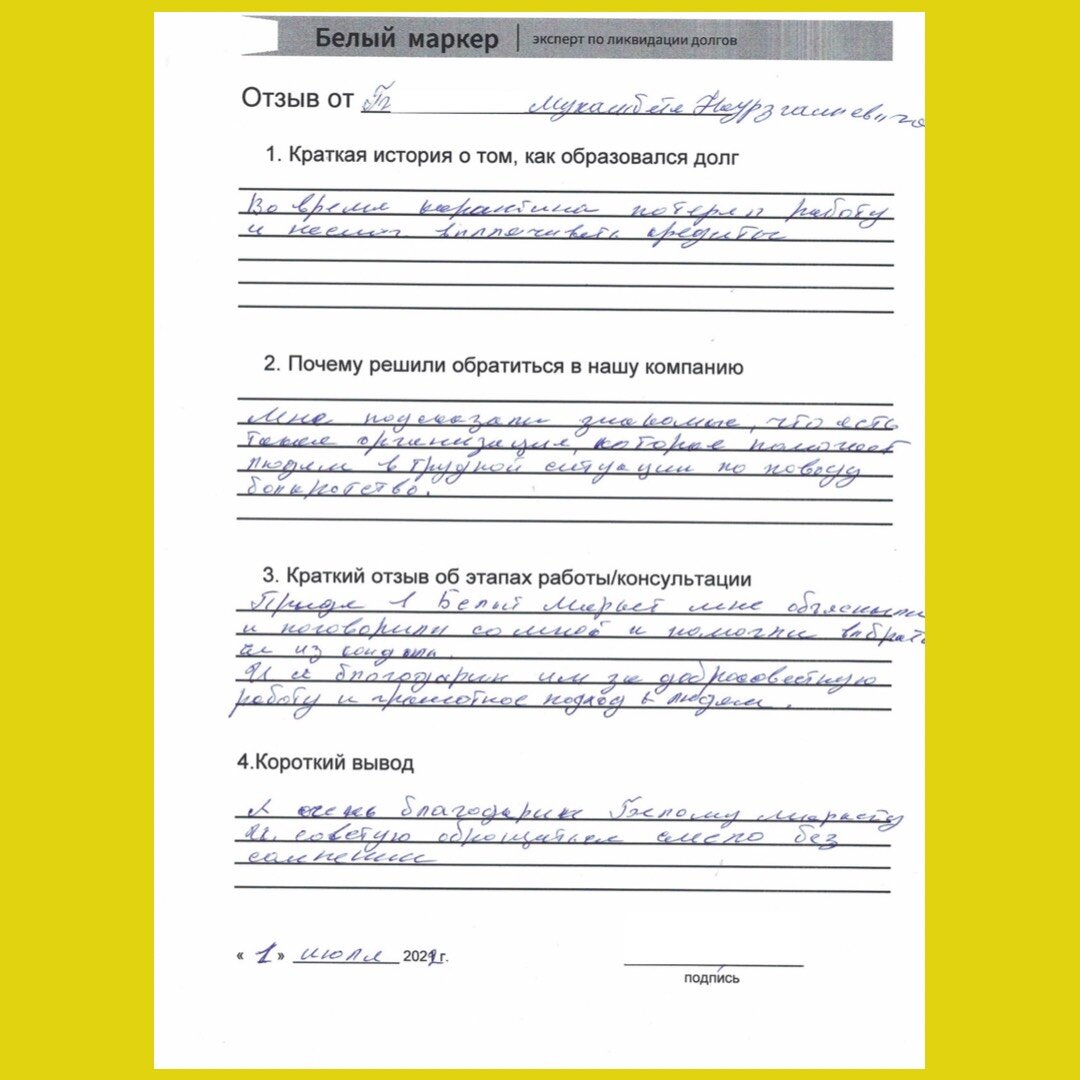 Белый маркер | эксперт по ликвидации долгов
Отзыв от Гр
1. Краткая история о том, как образовался долг
Во время карантина потерял работу
и несмог выплачивать кредиты
2. Почему решили обратиться в нашу компанию
Мне подсказали знакомые, что есть
такая организация, которая помогает
людям в трудной ситуации по поводу
банкротство.
3. Краткий отзыв об этапах работы/консультации
Придя в Белый мне объяснили
и поговорили со мной и помогли выбрать
ся из
И я благодарин им за добросовестную
работу и грамотное подход к людям.
4.Короткий вывод
Я очень благодарин Белому
И советую обращаться смело без
« 1 » июля 2021г.
подпись